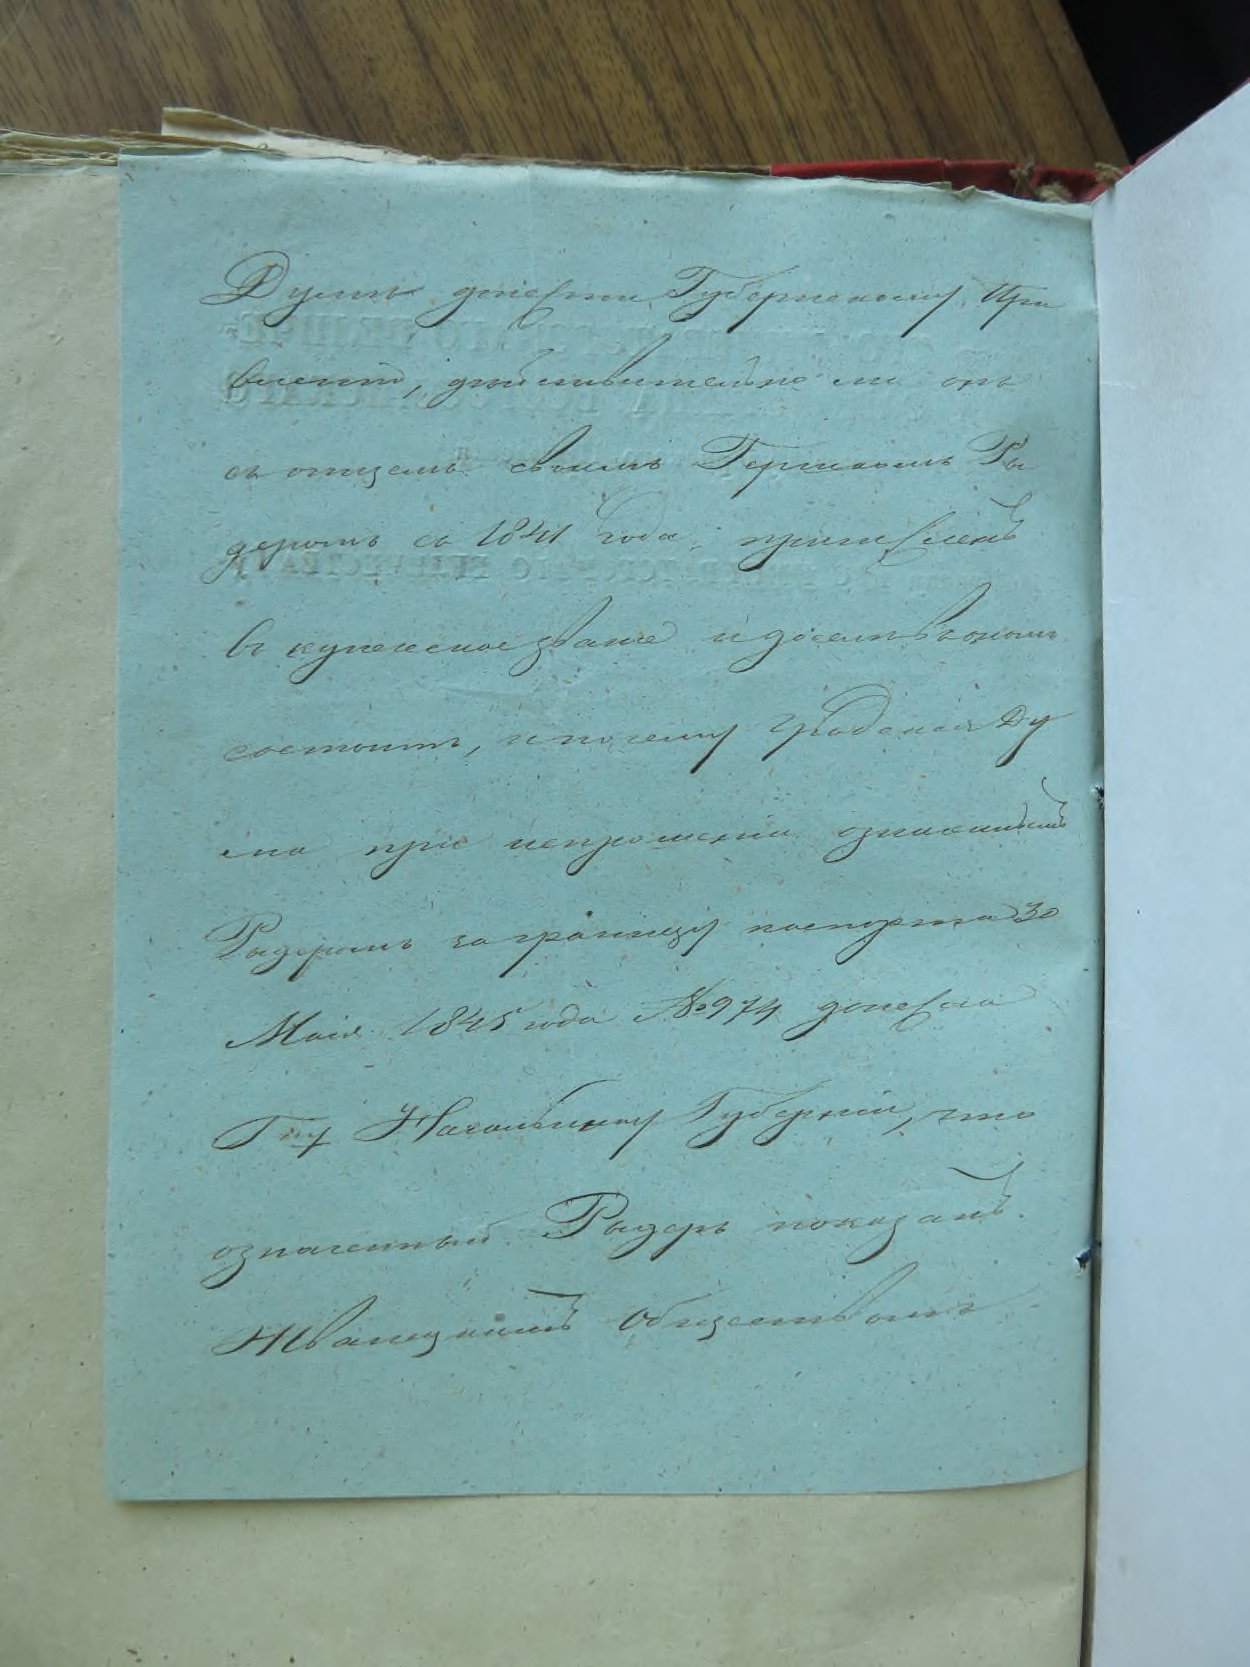 Думъ донести Губернскому Пра
вленію, дѣйствительно ли онъ
съ отцемъ своимъ Гершкомъ Ры
деромъ съ 1841 года, причисленъ
въ купеческое званіе и доселѣ въ ономъ
состоитъ, и почему Градская Ду
ма при испрошеніи означеннымъ
Рыдеромъ заграницу паспорта 30
Маія 1845 года № 974 донесла
Г ну Начальнику Губерніи, что
означенный Рыдеръ показанъ
Жванецкимъ Обществомъ